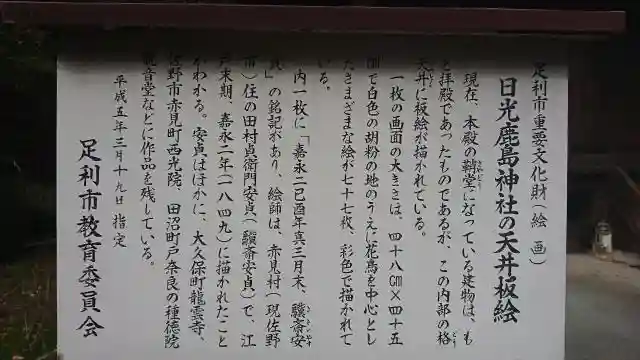 足利市重要文化財(絵画)
日光鹿島神社の天井板絵
現在、本殿の鞘堂になっている建物は、も
と拝殿であったものであるが、この内部の格
天井に板絵が描かれている。
一枚の画面の大きさは、四十八㎝×四十五
㎝で白色の胡粉の地のうえに花鳥を中心とし
たさまざまな絵が七十七枚、彩色で描かれて
いる。
内一枚に「嘉永二己酉年真三月末、驥斎安
貞」の銘記があり、絵師は、赤見村(現佐野
市)住の田村貞衛門安貞(驥斎安貞)で、江
戸末期、嘉永二年(一八四九)に描かれたこと
がわかる。安貞はほかに、大久保町龍雲寺、
佐野市赤見町西光院、田沼町戸奈良の種徳院
観音堂などに作品を残している。
平成五年三月十九日 指定
足利市教育委員会